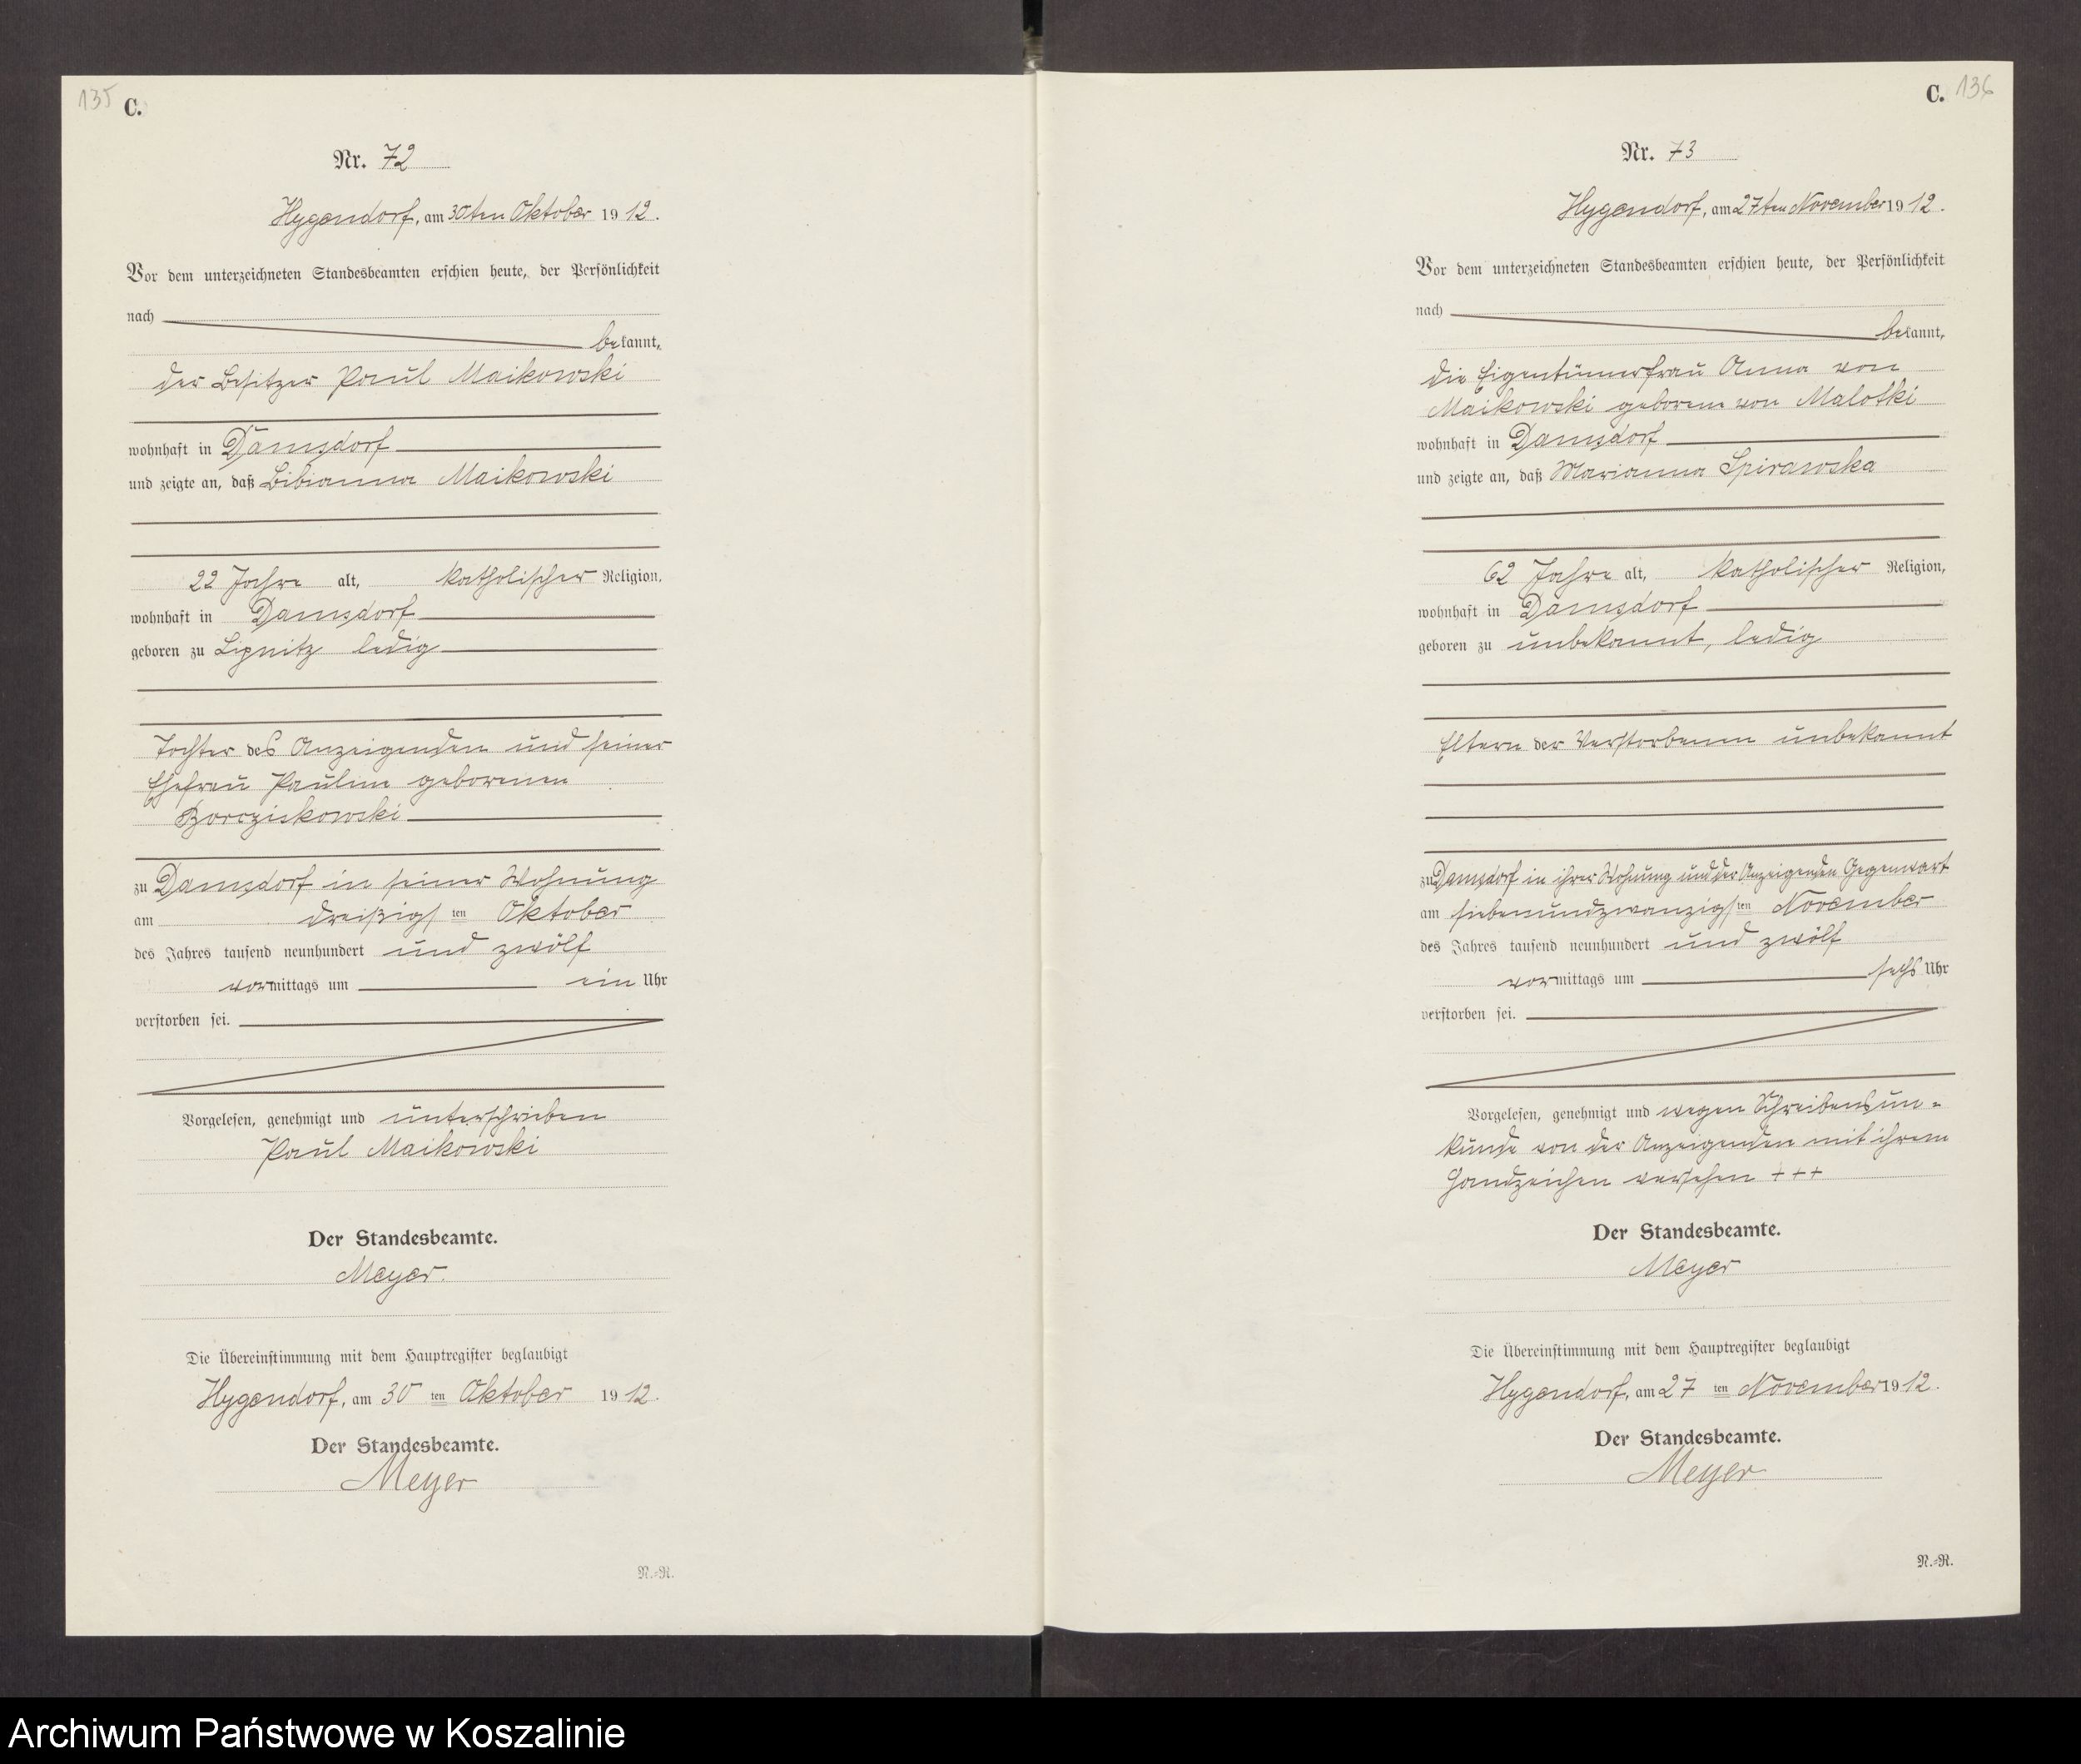 135 C.
Nr. 72
Hygendorf, am 30ten Oktober 1912.
Vor dem unterzeichneten Standesbeamten erschien heute, der Persönlichkeit
nach
bekannt,
der Besitzer Paul Maikowski
wohnhaft in Damsdorf
und zeigte an, daß Bibianna Maikowski
22 Jahre alt, katholischer Religion,
wohnhaft in Damsdorf
geboren zu Lipnitz ledig
Tochter des Anzeigenden und seiner
Ehefrau Pauline geborenen
Borrziskowski
zu Damsdorf in seiner Wohnung
am dreißigsten Oktober
des Jahres tausend neunhundert und zwölf
vormittags um ein Uhr
verstorben sei.
Vorgelesen, genehmigt und unterschrieben
Paul Maikowski
Der Standesbeamte.
Meyer.
Die Übereinstimmung mit dem Hauptregister beglaubigt
Hygendorf, am 30ten Oktober 1912.
Der Standesbeamte.
Meyer
N.-R.
C. 136
Nr. 73
Hygendorf, am 27ten November 1912.
Vor dem unterzeichneten Standesbeamten erschien heute, der Persönlichkeit
nach
bekannt,
die Eigentümerfrau Anna von
Maikowski geborene von Malotki
wohnhaft in Damsdorf
und zeigte an, daß Marianna Spirawska
62 Jahre alt, katholischer Religion,
wohnhaft in Damsdorf
geboren zu unbekannt, ledig
Eltern der Verstorbenen unbekannt
zu Damsdorf in ihrer Wohnung und der Anzeigenden Gegenwart
am siebenundzwanzigsten November
des Jahres tausend neunhundert und zwölf
vormittags um sechs Uhr
verstorben sei.
Vorgelesen, genehmigt und wegen Schreibensun-
kunde von der Anzeigenden mit ihrem
Handzeichen versehen +++
Der Standesbeamte.
Meyer
Die Übereinstimmung mit dem Hauptregister beglaubigt
Hygendorf, am 27ten November 1912.
Der Standesbeamte.
Meyer
N.-R.
Archiwum Państwowe w Koszalinie